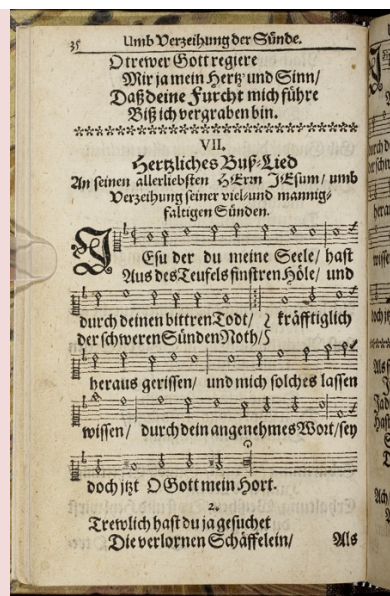 35 Umb Verzeihung der Sünde.
O trewer Gott regiere
Mir ja mein Hertz und Sinn/
Daß deine Furcht mich führe
Biß ich vergraben bin.
VII.
Hertzliches Buß-Lied
An seinen allerliebsten HErrn JEsum/ umb
Verzeihung seiner viel-und mannig-
faltigen Sünden.
JEsu der du meine Seele/ hast
Aus des Teufels finstren Höle/ und
durch deinen bittren Todt/ kräfftiglich
der schweren Sünden Noth/
heraus gerissen/ und mich solches lassen
wissen/ durch dein angenehmes Wort/ sey
doch jtzt O Gott mein Hort.
2.
Trewlich hast du ja gesuchet
Die verlornen Schäffelein/ Als